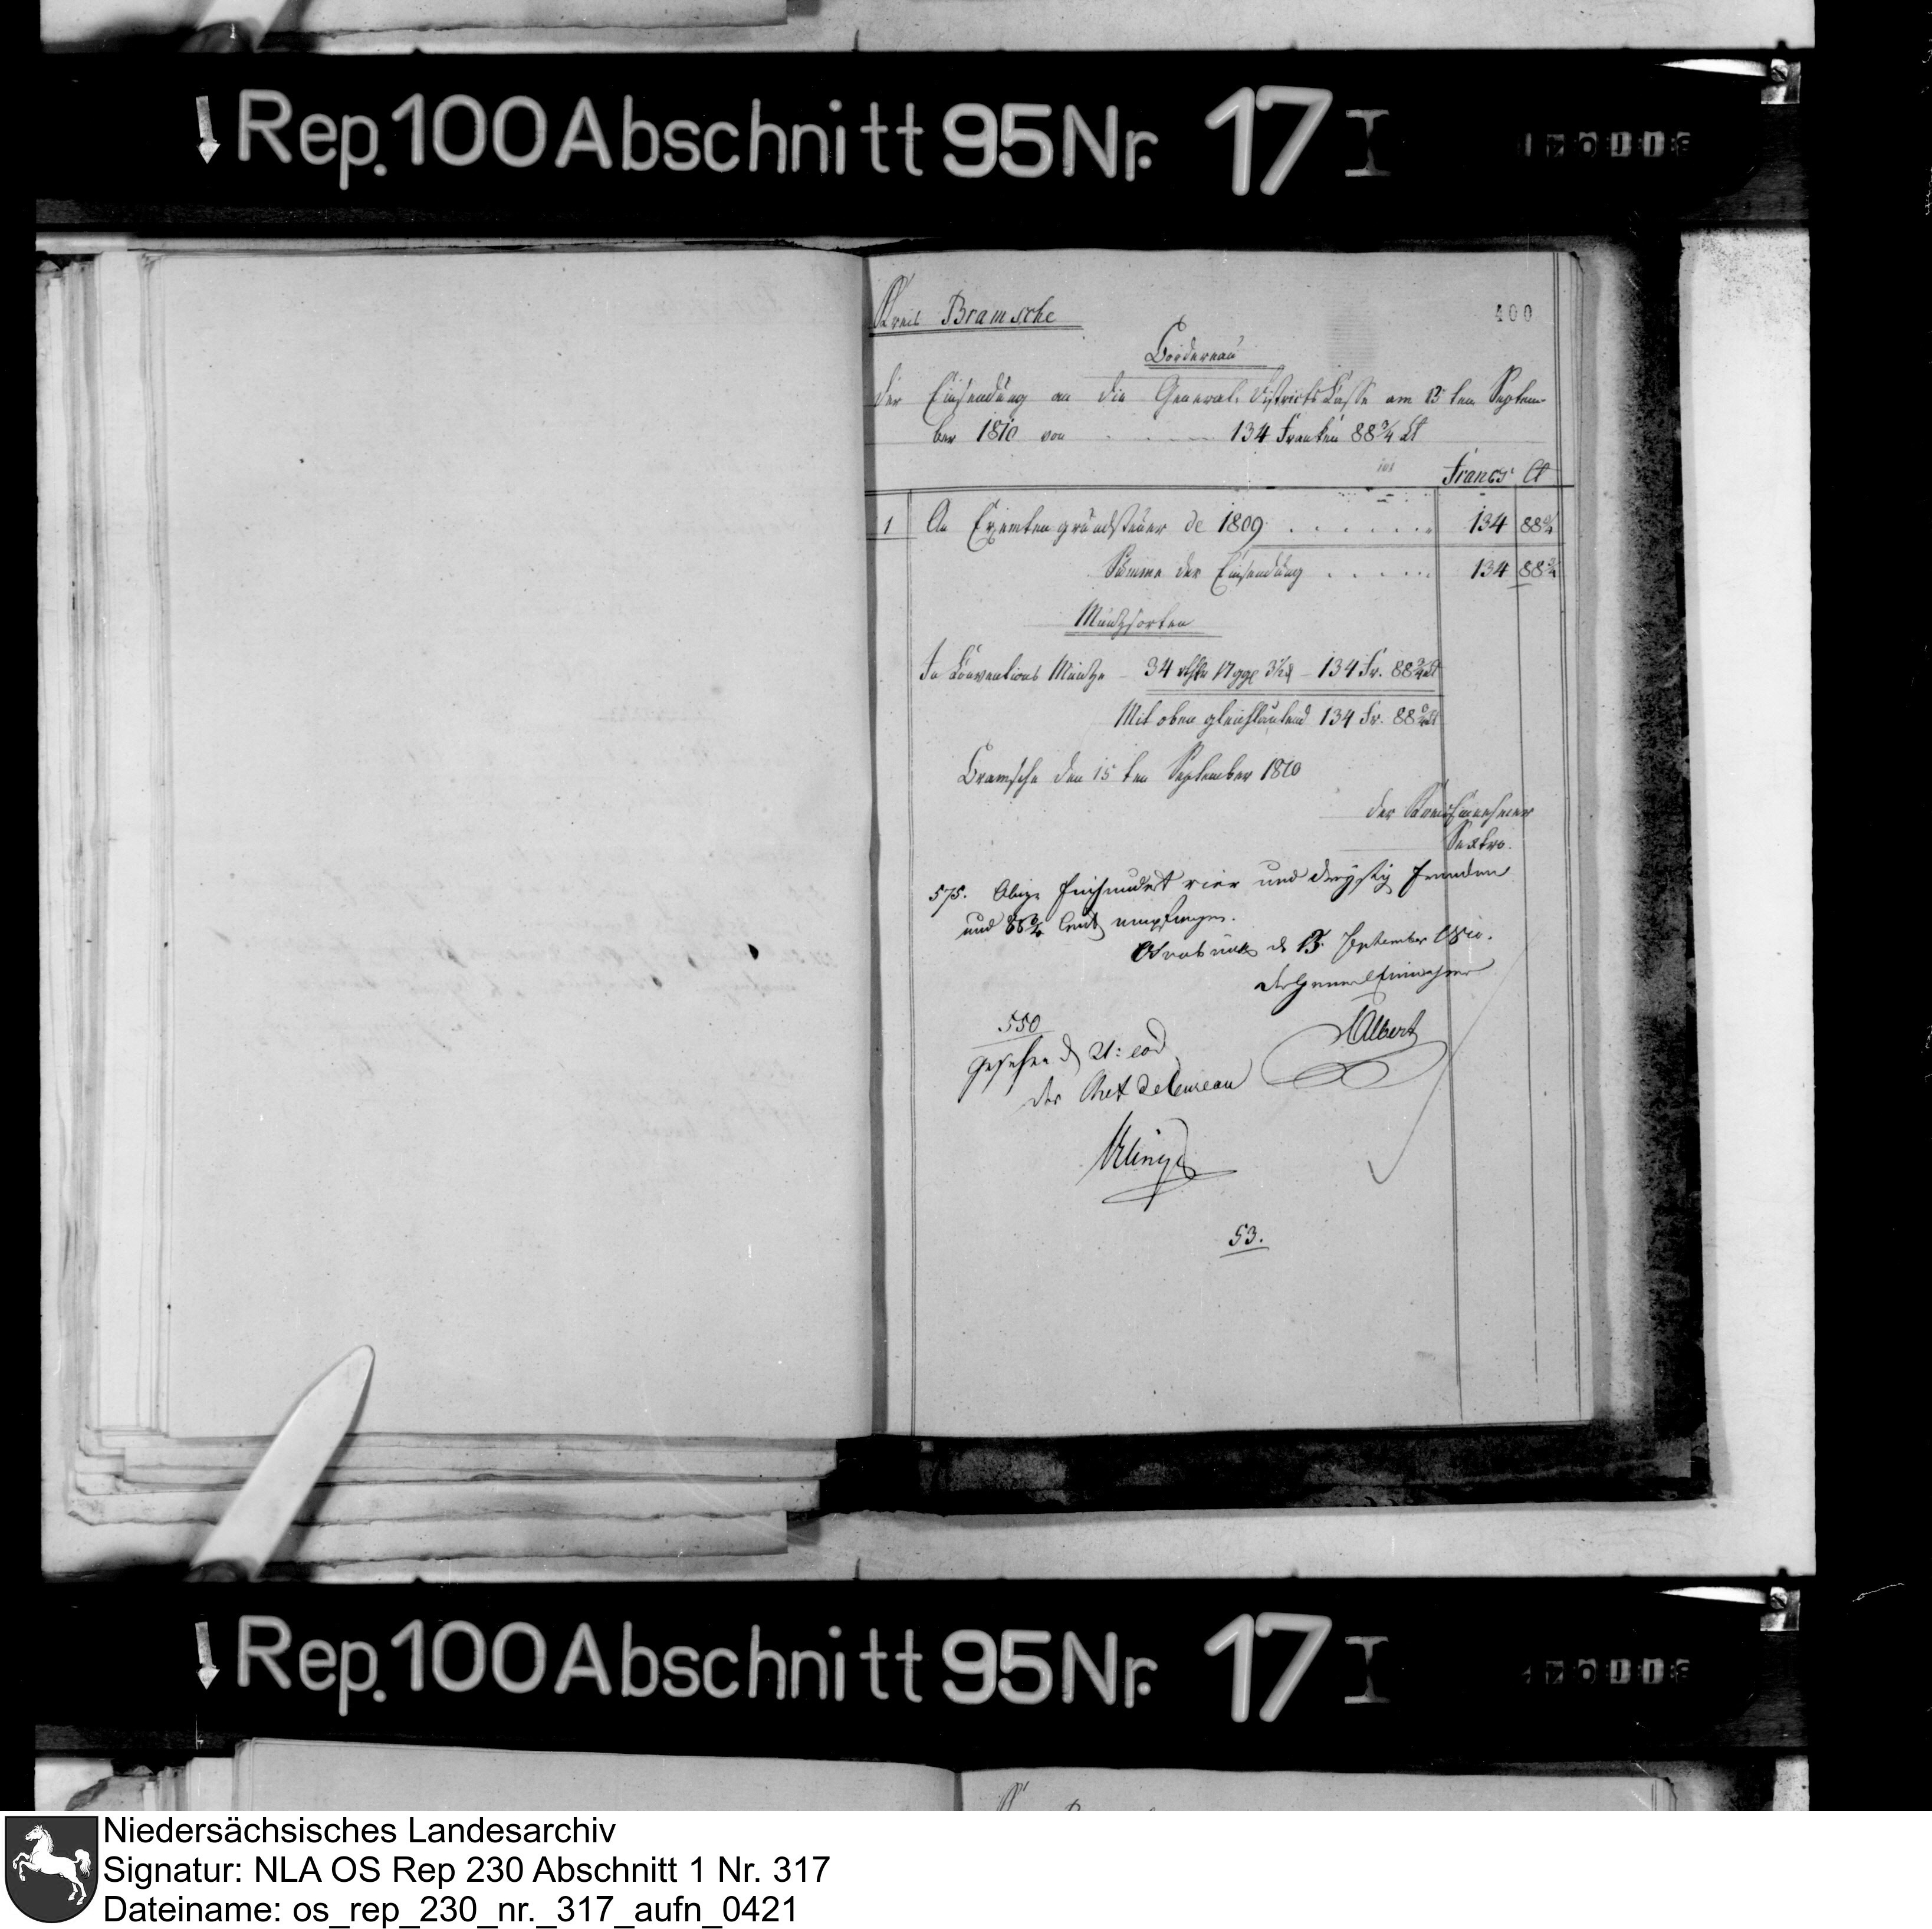 Rep. 100 Abschnitt 95 Nr. 17 I
Kreis Bramsche
400
Bordereau
der Einsendung an die General-Districts Casse am 15ten Septem-
ber 1810 von 134 Franken 88¾ Ct
Francs Ct
1 An Exemtengrundsteuer de 1809 134 88¾
Summe der Einsendung 134 88¾
Müntzsorten
In Conventions Müntze 34 17 ggl - 134 Fr. 88¾ Ct
Mit oben gleichlautend 134 Fr. 88¾ Ct
Bramsche den 15ten September 1810
der Kreiseinnehmer
Sextro.
575. Obige Einhundert vier und dreyßig Franken
und 88¾ Cent empfangen.
Osnabrück d 15. September 1810.
der General Einnehmer
Albert
550
gesehen d 21: eod
der Chef de Bureau
53.
Rep. 100 Abschnitt 95 Nr. 17 I
Niedersächsisches Landesarchiv
Signatur: NLA OS Rep 230 Abschnitt 1 Nr. 317
Dateiname: os_rep_230_nr._317_aufn_0421